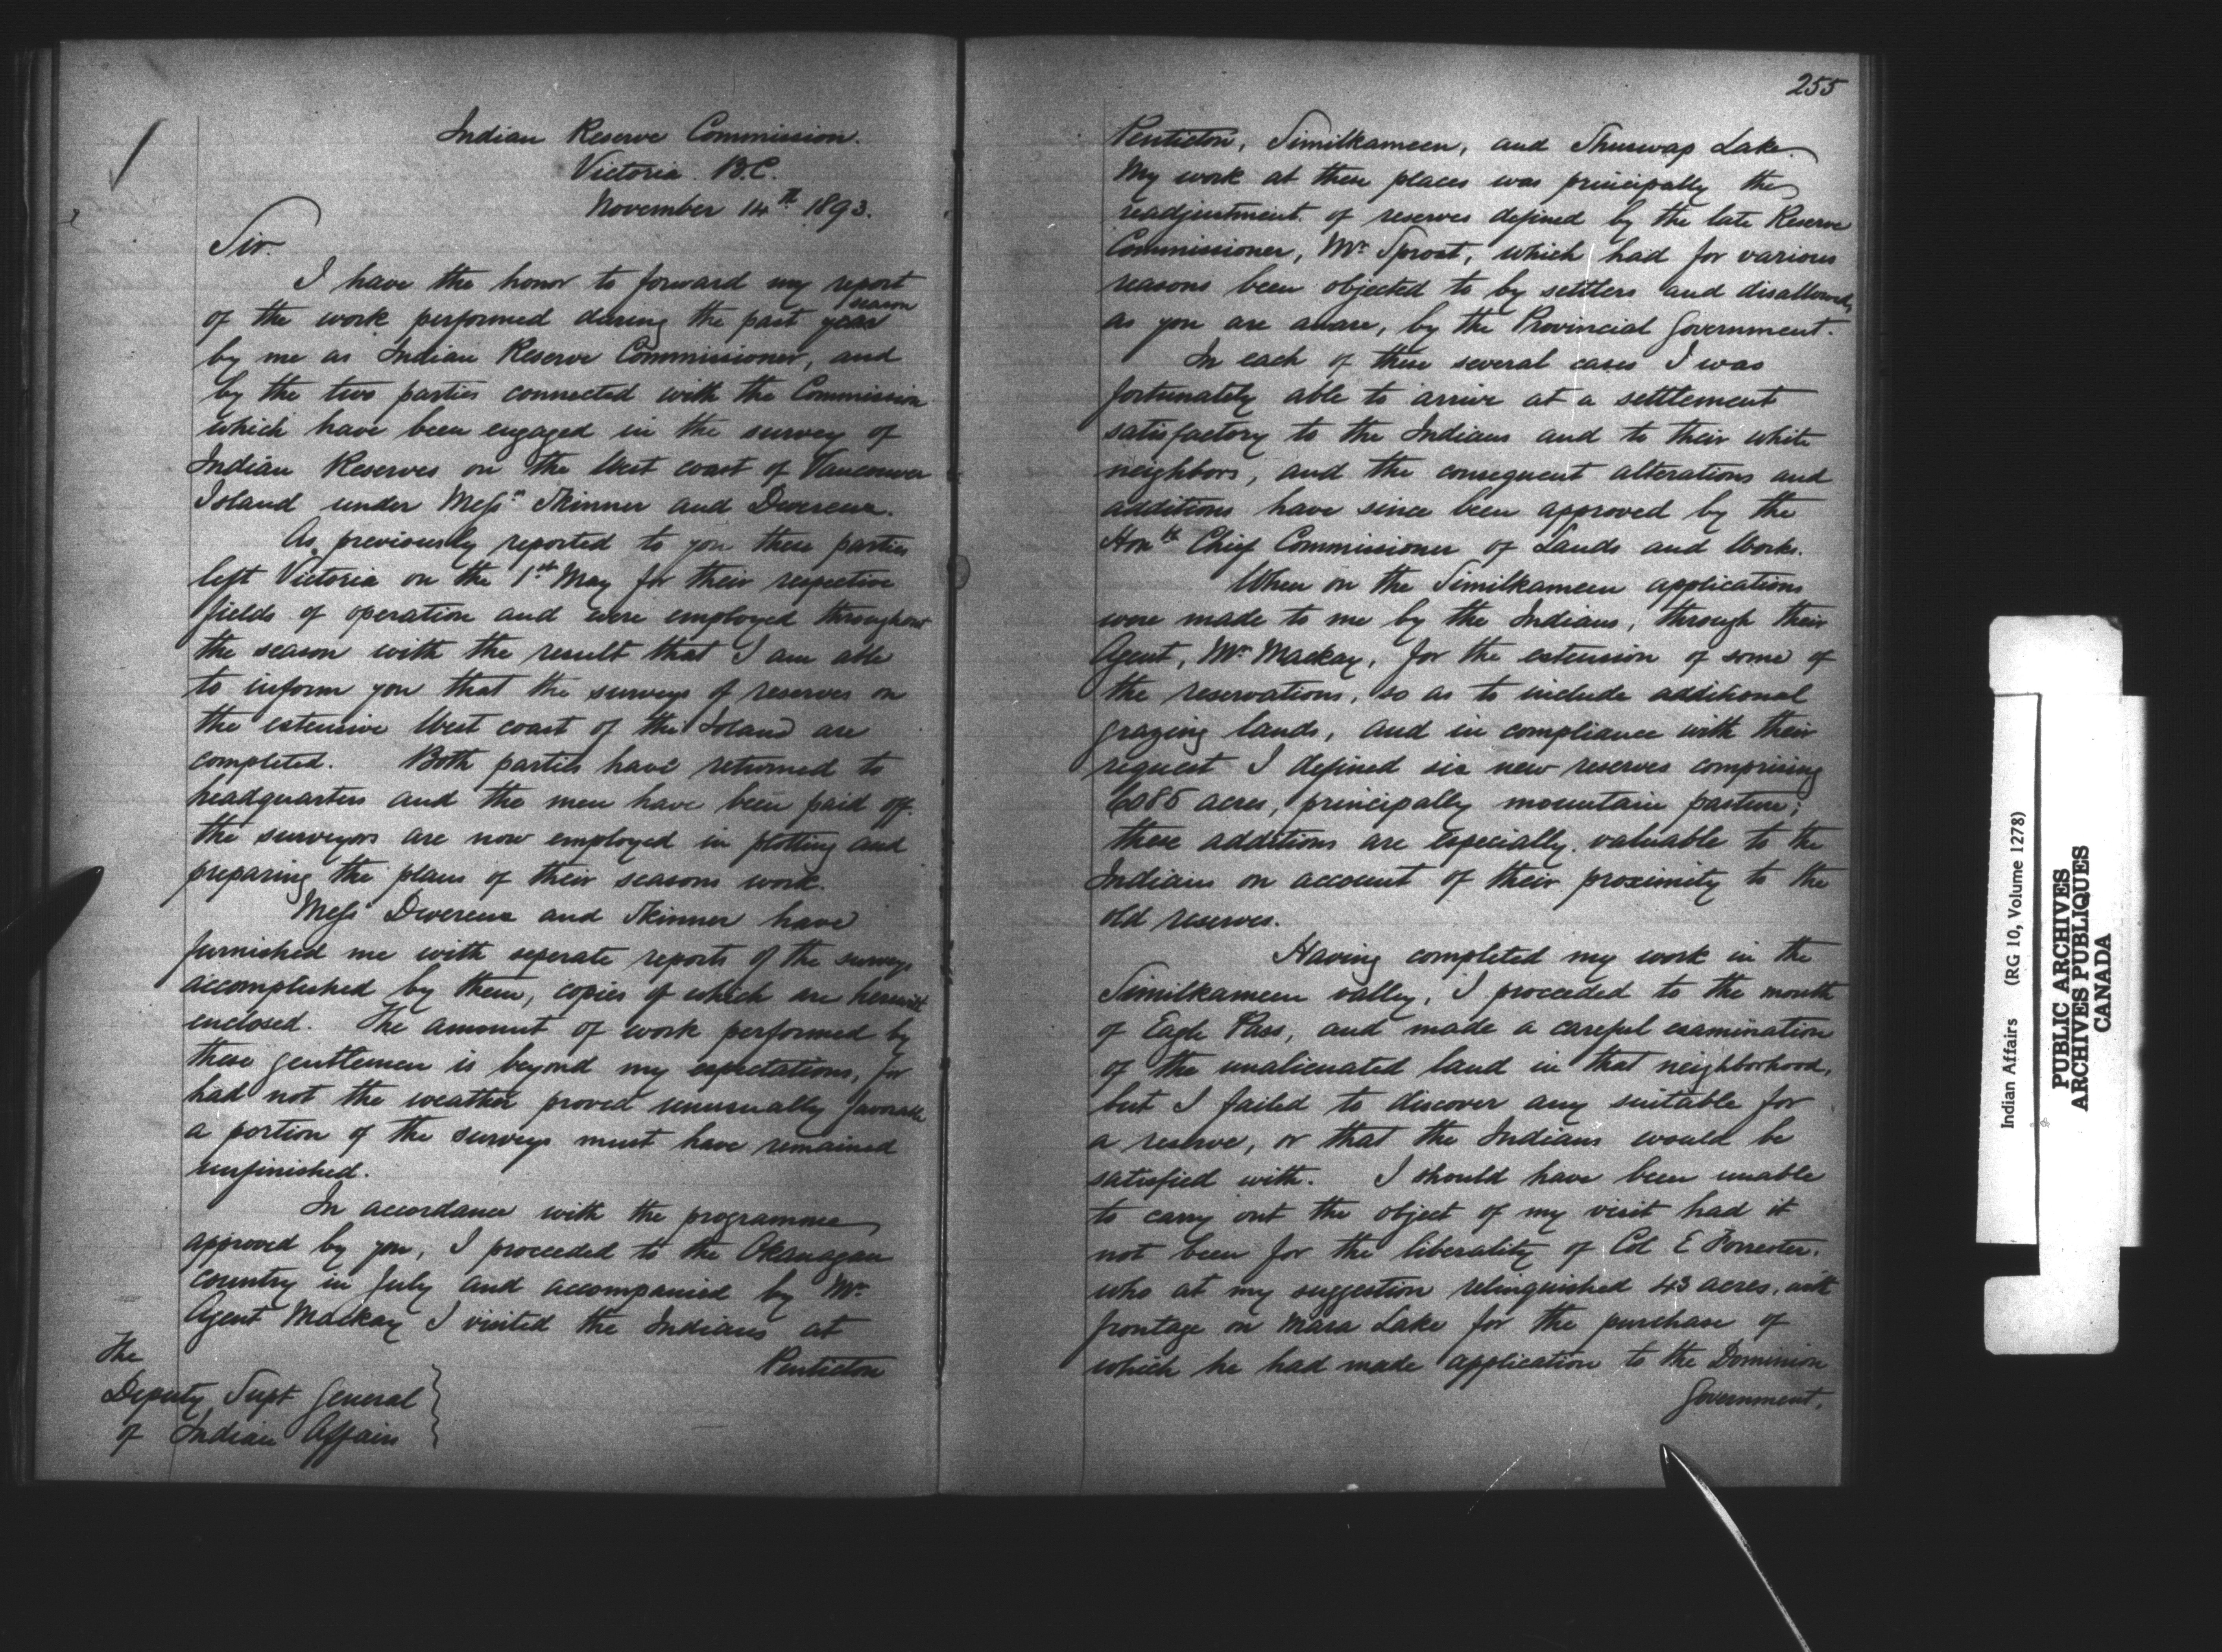 Indian Reserve Commission.
Victoria B.C.
November 14th 1893.
Sir.
I have the honor to forward my report
season
of the work performed during the past year
by me as Indian Reserve Commissioner, and
by the two parties connected with the Commission
which have been engaged in the survey of
Indian Reserves on the West coast of Vancouver
Island under Messrs Skinner and Devereux.
As previously reported to you these parties
left Victoria on the 1st May for their respective
fields of operation and were employed throughout
the season with the result that I am able
to inform you that the surveys of reserves on
the extensive West coast of the Island are
completed. Both parties have returned to
headquarters and the men have been paid off.
the surveyors are now employed in plotting and
preparing the plans of their seasons work.
Messrs Devereux and Skinner have
furnished me with seperate reports of the surveys
accomplished by them, copies of which are herewith
enclosed. The amount of work performed by
these gentlemen is beyond my expectations, for
had not the weather proved unusually favorable
a portion of the surveys must have remained
unfinished.
In accordance with the programme
approved by you, I proceeded to the Okanagan
country in July and accompanied by Mr.
Agent Mackay I visited the Indians at
Penticton
The
Deputy Supt General
of Indian Affairs
255
Penticton, Similkameen, and Shuswap Lake.
My work at these places was principally the
readjustment of reserves defined by the late Reserve
Commissioner, Mr Sproat, which had for various
reasons been objected to by settlers and disallowed,
as you are aware, by the Provincial Government.
In each of these several cases I was
fortunately able to arrive at a settlement
satisfactory to the Indians and to their white
neighbors, and the consequent alterations and
additions have since been approved by the
Honble Chief Commissioner of Lands and Works.
When on the Similkameen applications
were made to me by the Indians, through their
Agent, Mr Mackay, for the extension of some of
the reservations, so as to include additional
grazing lands, and in compliance with their
request I defined six new reserves comprising
acres, principally mountain pasture;
these additions are especially valuable to the
Indians on account of their proximity to the
old reserves.
Having completed my work in the
Similkameen valley, I proceeded to the mouth
of Eagle Pass, and made a careful examination
of the unalienated land in that neighborhood,
but I failed to discover any suitable for
a reserve, or that the Indians would be
satisfied with. I should have been unable
to carry out the object of my visit had it
not been for the liberality of Col E Forrester.
who at my suggestion relinquished 43 acres, with
frontage on Mara Lake for the purchase of
which he had made application to the Dominion
Government.
Indian Affairs (RG 10, Volume 1278)
PUBLIC ARCHIVES
ARCHIVES PUBLIQUES
CANADA